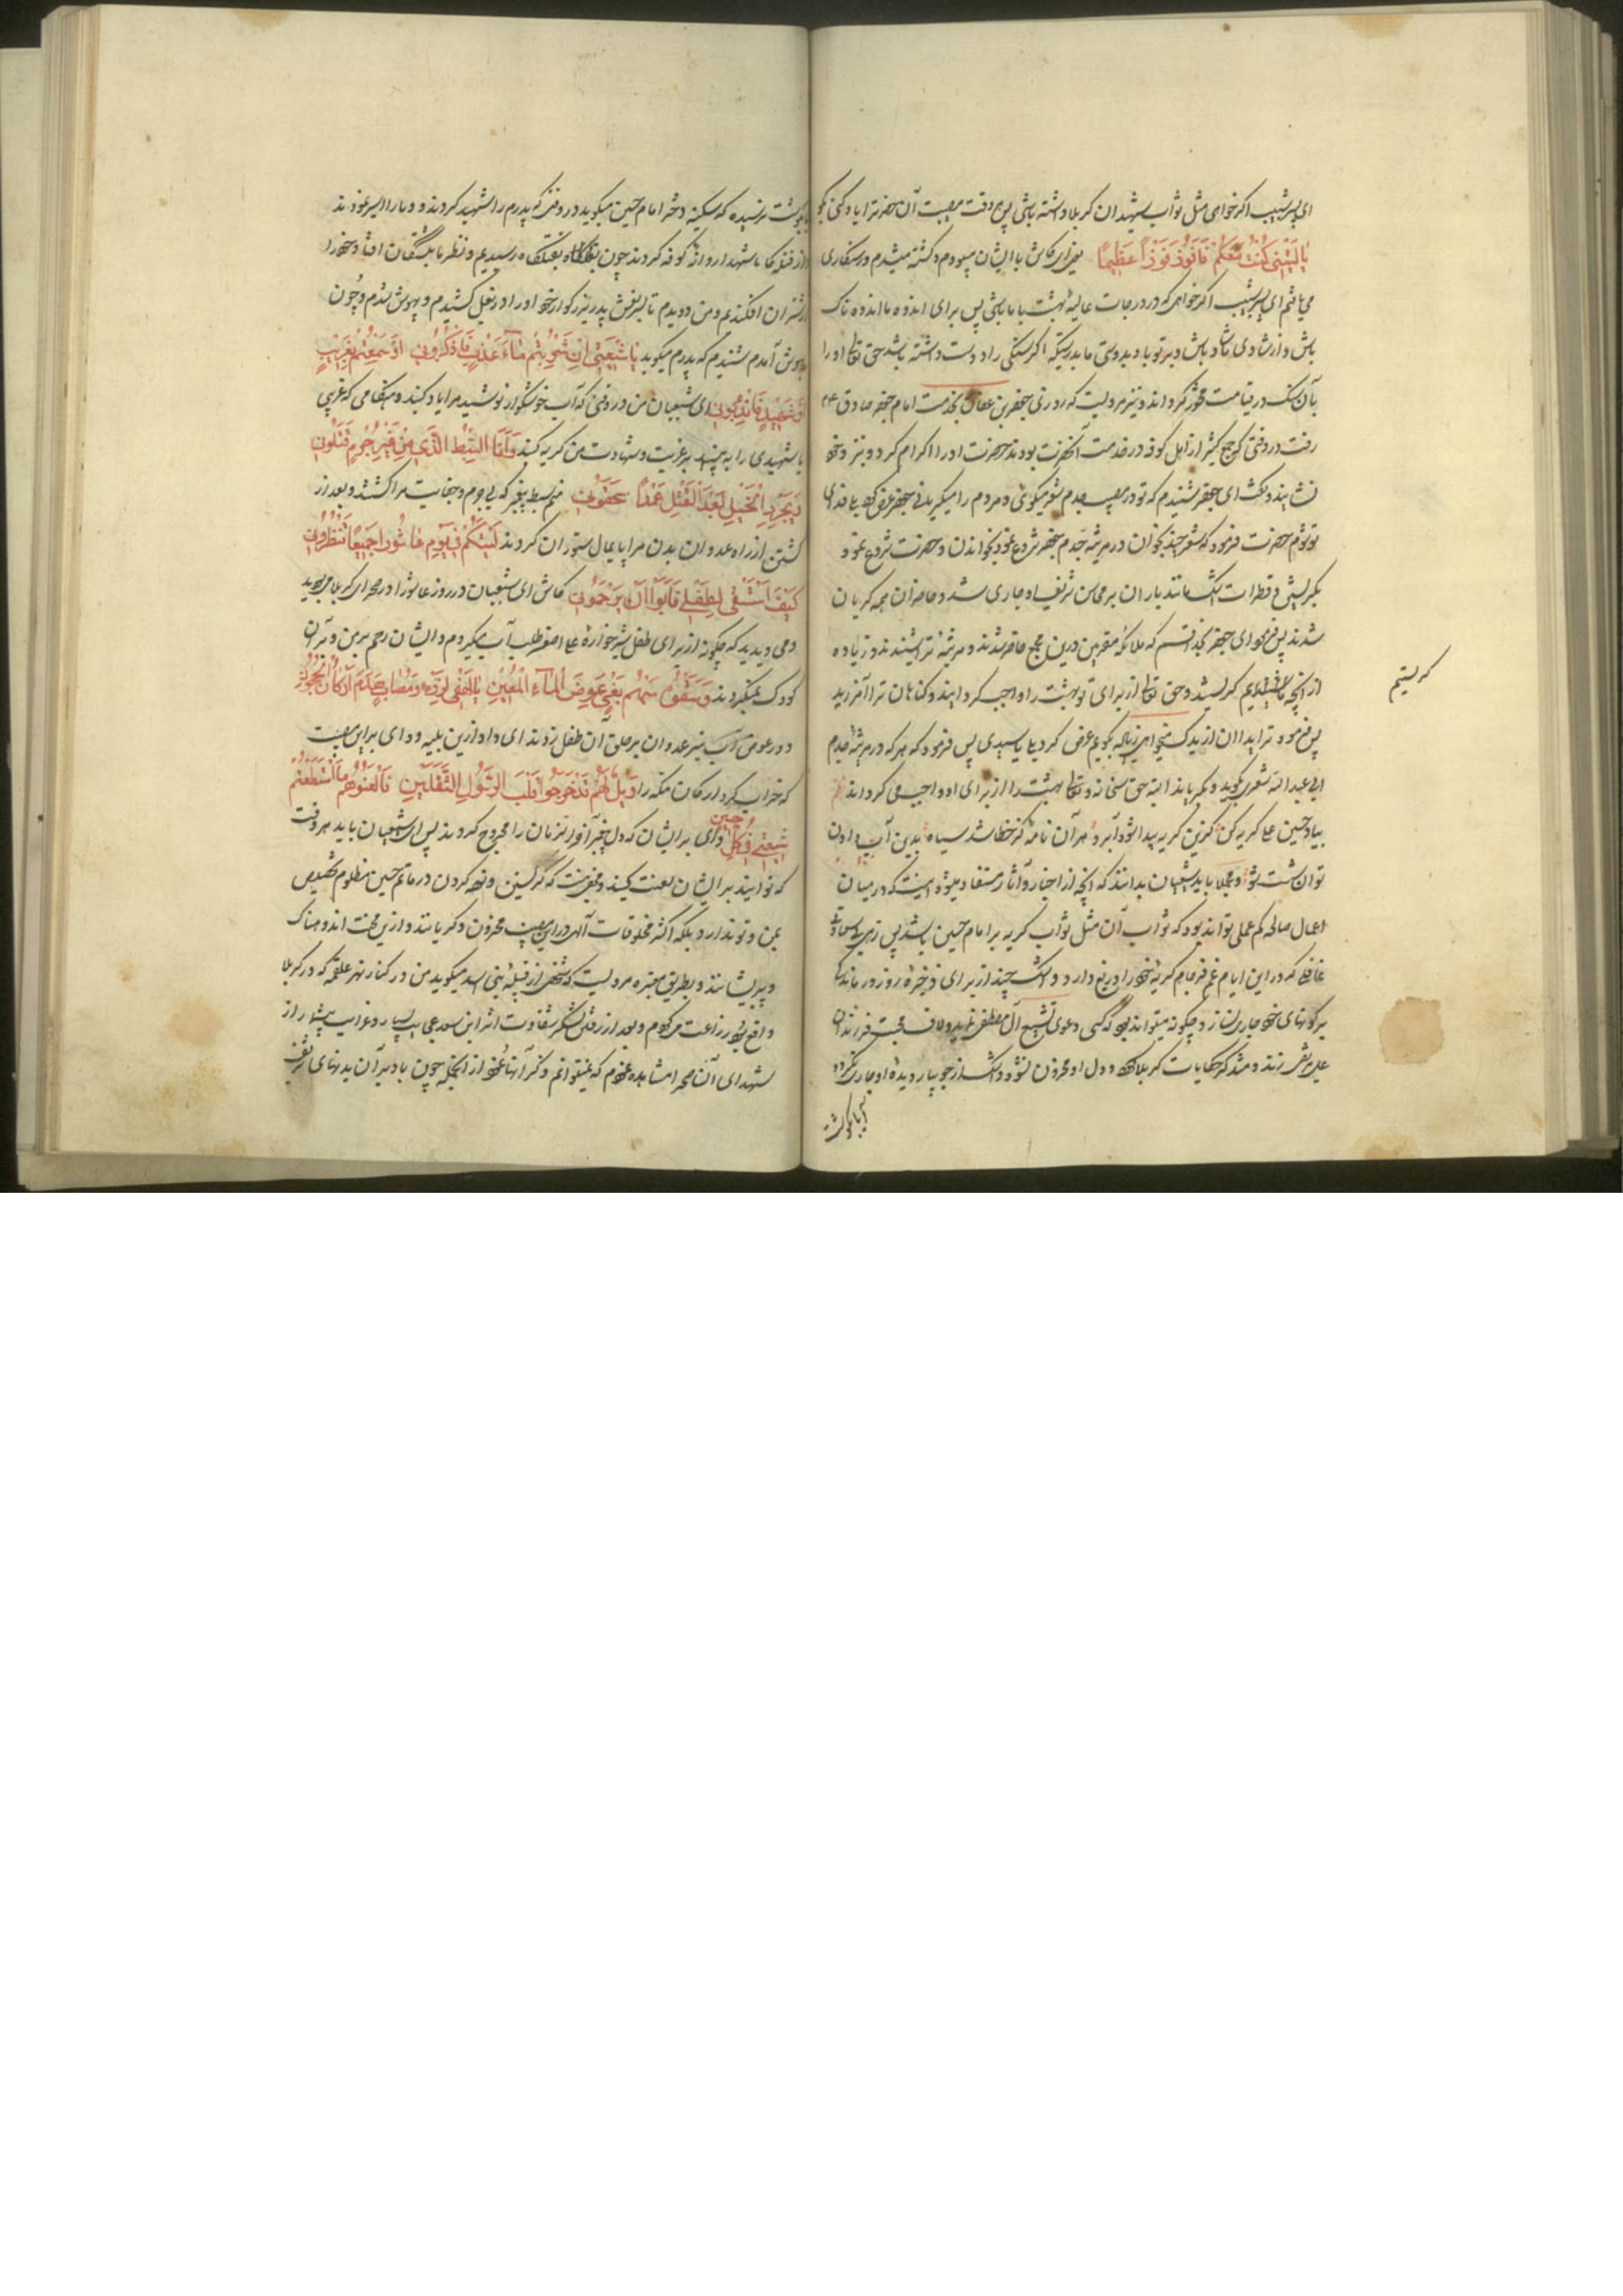 ای پسر شبیب اگر خواهی مثل ثواب شهیدان کربلا داشته باشی پس هر وقت مصیبت آن حضرترا یاد کنی بگو
یا لَیْتَنی کُنْتُ مَعَکُمْ فَاَفُوزَ فَوْزاً عَظیماً یعنی ای کاش با ایشان میبودم و کشته میشدم و رستگاری
می یافتم ای پسر شبیب اگر خواهی که در درجات عالیهٔ بهشت با ما باشی پس برای اندوه ما اندوه ناک
باش و از شادی ما شاد باش و بر تو باد بدوستی ما بدرستیکه اگر سنگی را دوست داشته باشد حق تعالی او را
بآن سنک در قیامت محشور گرداند و نیز مرویست که روزی جعفر بن عفان بخدمت امام جعفر صادق ع
رفت در وقتی که جمع کثیر از اهل کوفه در خدمت آنحضرت بودند حضرت او را اکرام کرد و نزد خود
نشانید و گفت ای جعفر شنیدم که تو در مصیبت جدم شعر میگوئی و مردم را میگریانی جعفر عرض کرد بلی فدای
تو شوم حضرت فرمود که شعر چند بخوان در مرثیه جدم جعفر شروع نمود بخواندن و حضرت شروع نمود
بگریستن و قطرات اشک مانند باران بر محاسن شریف او جاری شد و حاضران همه گریان
شدند پس فرمود ای جعفر بخدا قسم که ملائکه مقربین درین مجمع حاضر شدند و مرثیهٔ ترا شنیدند و زیاده
از آنچه ما گریستیم گریستند و حق تعالی از برای تو بهشت را واجب گردانید و گناهان ترا آمرزید
گریستیم
پس فرمود ترا بدان از یدک میخواهی زیاده بگویم عرض کرد بلی یا سیدی پس فرمود که هر که در مرثیهٔ جدم
ابی عبد الله شعری بگوید و بگریاند البته حق سبحانه و تعالی بهشت را از برای او واجب می گرداند
بیاد حسین علی گریه کن کزین گریه پیدا شود آبرو هر آن نامه کز خطا شد سیاه بدین آب دادن
توان شست شو و مجملا باید شیعیان بدانند که آنچه از اخبار و آثار مستفاد میشود اینست که در میان
اعمال صالحه کم عملی تواند بود که ثواب آن مثل ثواب گریه بر امام حسین باشد پس زهی
غافلی که در این ایام غم فرجام گریه خود را دریغ دارد و اشک چند از برای ذخیره روز درماندگی
بر گونهای خود جاری نسازد و چگونه میتواند بود که کسی دعوی تشیع آل مصطفی نماید و لاف محبت فرزندان
علی مرتضی زند و متذکر حکایات کربلا شود و دل او محزون نشود و اشک از جویبار دیده او جاری نگردد
آیا بگوشت
بگوشت نرسیده که سکینه دختر امام حسین میگوید در وقتی که پدرم را شهید کردند و ما را اسیر نمودند
از قتلگاه شهدا روانهٔ کوفه کردند چون بقتلگاه رسیدیم و نظر ما بکشتگان افتاد خود را
از شتران افکندیم و من دویدم تا بر نعش پدر بزرگوار خود او را در بغل کشیدم و بیهوش شدم و چون
بهوش آمدم شنیدم که پدرم میگوید یا شیعَتی اِنْ شَرِبْتُم ماءَ عَذْبٍ فَاذْکُرُونی اَوْ سَمِعْتُم بِغَریبٍ
اَوْ شَهیدٍ فَانْدُبُونی ای شیعیان من در وقتی که آب خوشگوار نوشید مرا یاد کنید و هنگامی که غریبی
یا شهیدی را به بینید بر غربت و شهادت من گریه کنید وَاَنَا السِّبْطُ الَّذی مِنْ غَیْرِ جُرْمٍ قَتَلُونی
وَ بِجُرْدِ الْخَیْلِ بَعْدَ الْقَتْلِ عَمْداً سَحَقُونی منم سبط پیغمبر که بی جرم و جنایت مرا کشتند و بعد از
کشتن از راه عدوان بدن مرا پایمال ستوران کردند لَیْتَکُمْ فی یَوْمِ عاشُورا جَمیعاً تَنْظُرُونی
کَیْفَ اَسْتَسْقی لِطِفْلی فَاَبَوْا اَنْ یَرْحَمُونی کاش ای شیعیان در روز عاشورا در صحرای کربلا می بودید
و می دیدید که چگونه از برای طفل شیر خوارهٔ علی اصغر طلب آب میکردم و ایشان رحم بر من و بر آن
کودک نمیکردند وَ سَقَوْهُ سَهْمَ بَغْیٍ عِوَضَ الْماءِ الْمَعینِ یا لَرُزْءٍ وَ مُصابٍ هَدَّ اَرْکانَ الْحُجُونِ
و در عوض آب تیر عدوان بر حلق آن طفل زدند ای داد ازین بلیه و وای بر این مصیبت
که خراب کرد ارکان مکه را وَیْلَهُمْ قَدْ جَرَحُوا قَلْبَ الرَّسُولِ الثَّقَلَیْنِ فَالْعَنُوهُمْ مَا اسْتَطَعْتُمْ
شیعَتی فی کُلِّ حین وای بر ایشان که دل پیغمبر آخر الزمان را مجروح کردند پس ای شیعیان باید هر وقت
که توانید بر ایشان لعنت کنید و مخفی نیست که گریستن و نوحه کردن در ماتم حسین مظلوم تخصیص
بمن و تو ندارد بلکه اکثر مخلوقات الهی در این مصیبت محزون و گریانند و ازین محنت اندوهناک
و پریشانند و بطریق معتبره مرویست که شخصی از قبیله بنی اسد میگوید من در کنار نهر علقمه که در کربلا
واقع بود زراعت میکردم و بعد از رفتن لشکر شقاوت اثر ابن سعد عجایب بسیار و غرایب بیشمار از
شهدای آن صحرا مشاهده نمودم که نمیتوانم ذکر آنها نمود از آنجمله چون باد بر آن بدنهای شریف